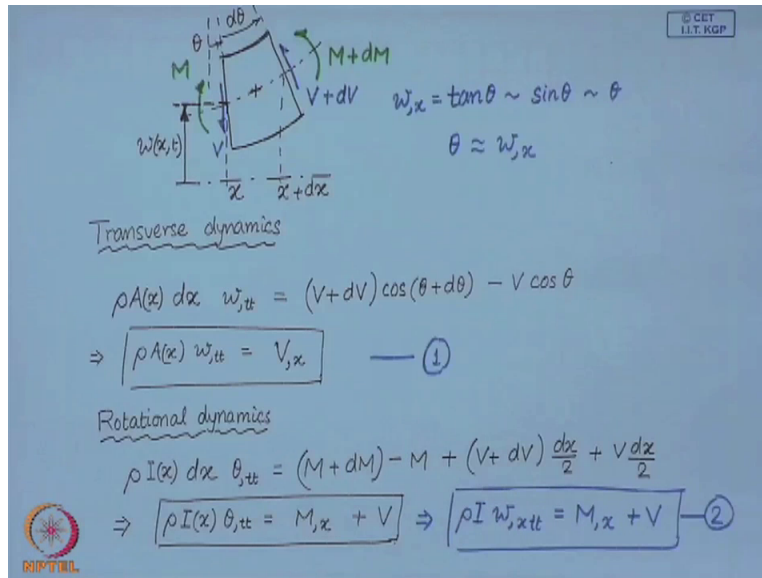 © CET
I.I.T. KGP
dθ
θ
M
M+dM
V+dV
w,x = tanθ ~ sinθ ~ θ
w(x,t)
V
θ ≈ w,x
x
x+dx
Transverse dynamics
ρA(x) dx w,tt = (V+dV) cos(θ+dθ) - V cosθ
⇒ ρA(x) w,tt = V,x — 1
Rotational dynamics
ρI(x) dx θ,tt = (M+dM) - M + (V+dV) dx/2 + V dx/2
⇒ ρI(x) θ,tt = M,x + V ⇒ ρI w,xtt = M,x + V — 2
NPTEL